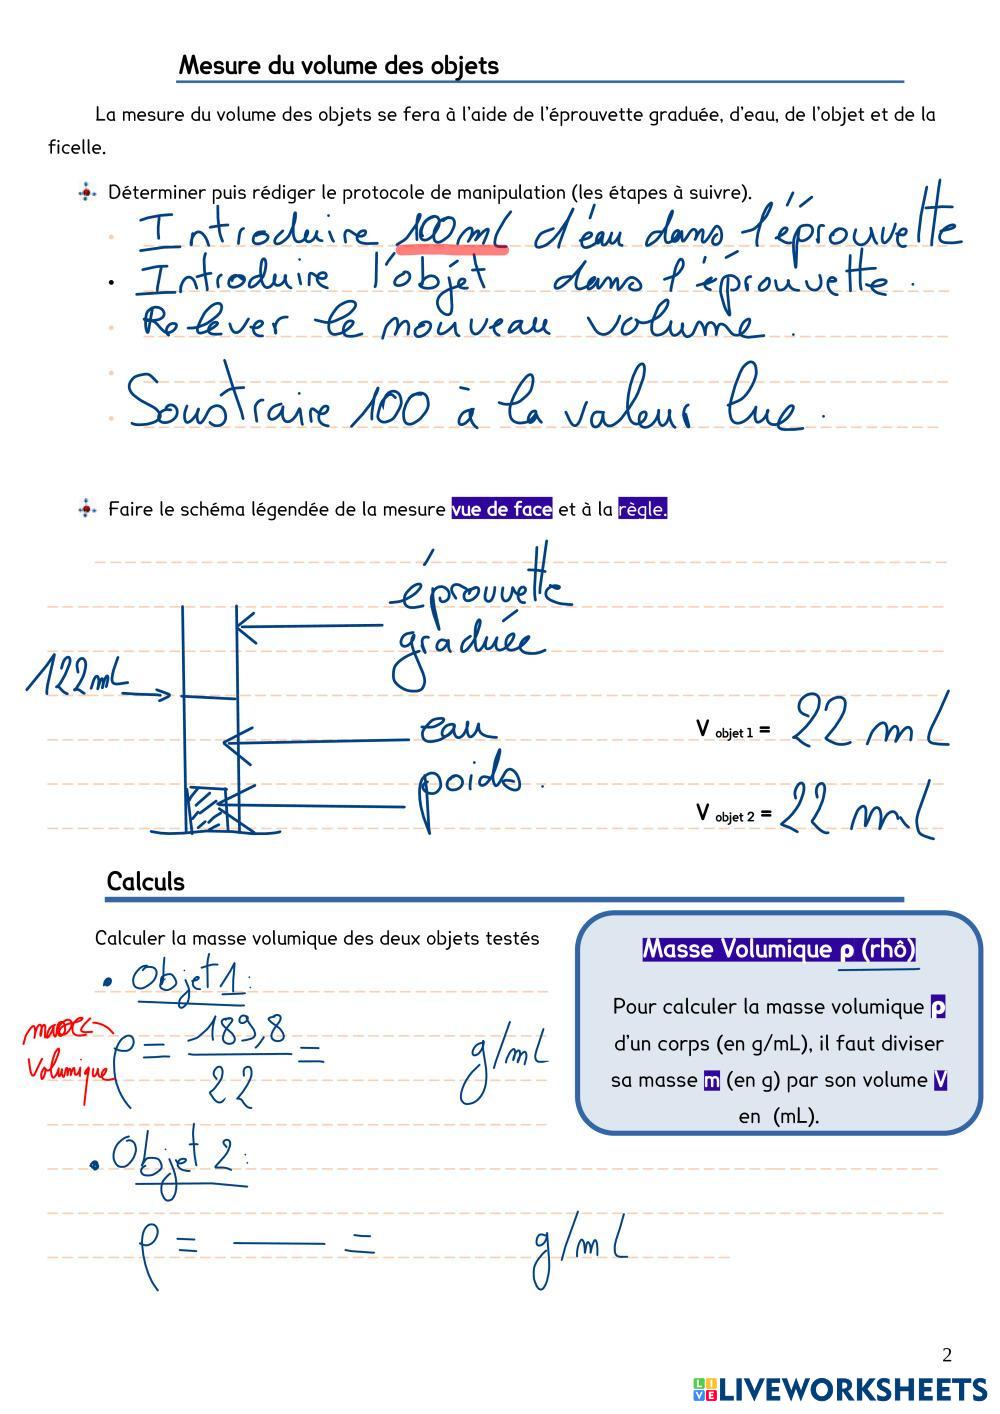 Mesure du volume des objets
La mesure du volume des objets se fera à l'aide de l'éprouvette graduée, d'eau, de l'objet et de la
ficelle.
Déterminer puis rédiger le protocole de manipulation (les étapes à suivre).
Introduire 100 mL d'eau dans l'éprouvette
Introduire l'objet dans l'éprouvette.
Relever le nouveau volume.
Soustraire 100 à la valeur lue.
Faire le schéma légendée de la mesure vue de face et à la règle.
éprouvette
graduée
122 mL
eau
poids.
V objet 1 = 22 mL
V objet 2 = 22 mL
Calculs
Calculer la masse volumique des deux objets testés
• Objet 1:
masse
Volumique
ρ = 189,8 / 22 = g/mL
• Objet 2:
ρ = — = g/mL
Masse Volumique ρ (rhô)
Pour calculer la masse volumique ρ
d'un corps (en g/mL), il faut diviser
sa masse m (en g) par son volume V
en (mL).
2
LIVE LIVEWORKSHEETS